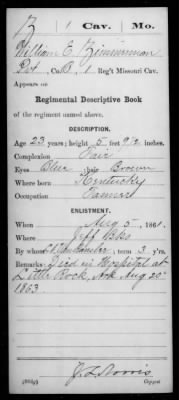 Z 1 Cav. Mo.
William E Zimmerman
Pvt, Co. B, 1 Reg't Missouri Cav.
Appears on
Regimental Descriptive Book
of the regiment named above.
DESCRIPTION.
Age 23 years; height 5 feet 9 1/2 inches.
Complexion Fair
Eyes Blue; hair Brown
Where born Kentucky
Occupation Farmer
ENLISTMENT.
When Aug 5, 1861.
Where Jeff Bks
By whom; term 3 y'rs.
Remarks: Died in Hospital at
Little Rock, Ark Aug 20"
1863
J. L. Norris
Copyist.